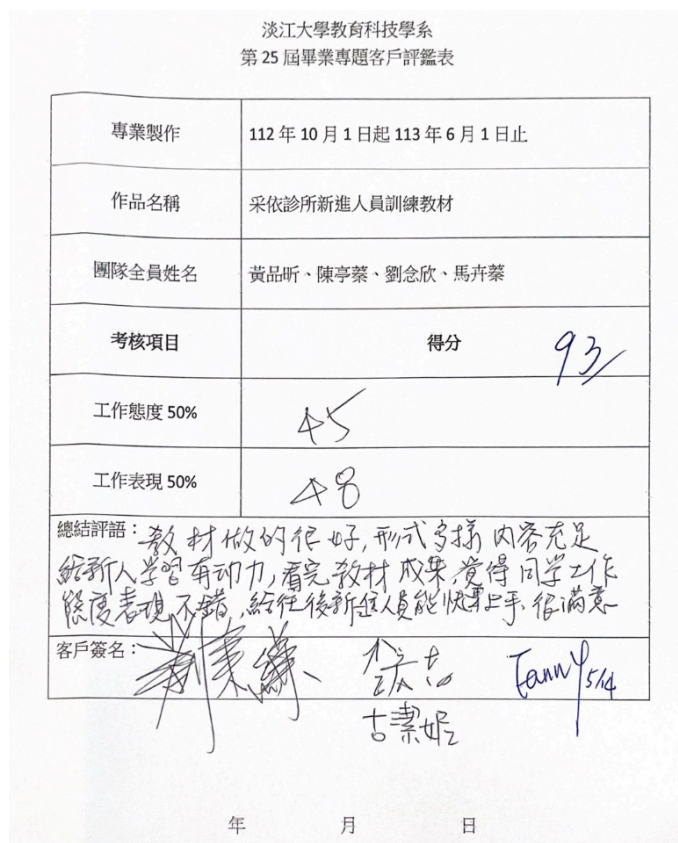 淡江大學教育科技學系
第 25 屆畢業專題客戶評鑑表
專業製作 112 年 10 月 1 日起 113 年 6 月 1 日止
作品名稱 采依診所新進人員訓練教材
團隊全員姓名 黃品昕、陳亭蓁、劉念欣、馬卉蓁
考核項目 得分 93/
工作態度 50% 45
工作表現 50% 48
總結評語：教材做的很好,形式多樣 内容充足
給新人学習有动力,看完教材成果,覚得同学工作
態度表現不錯,給往後新進人員能快速上手.很滿意
客戶簽名： Fanny 5/14
古潔妮
年 月 日